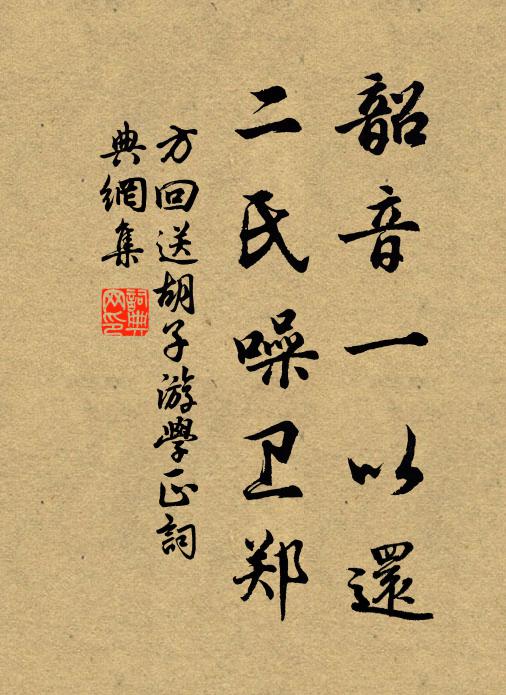 韶音一以還
二氏噪卫郑
方回送胡子游學正詞
典網集
詞典網印